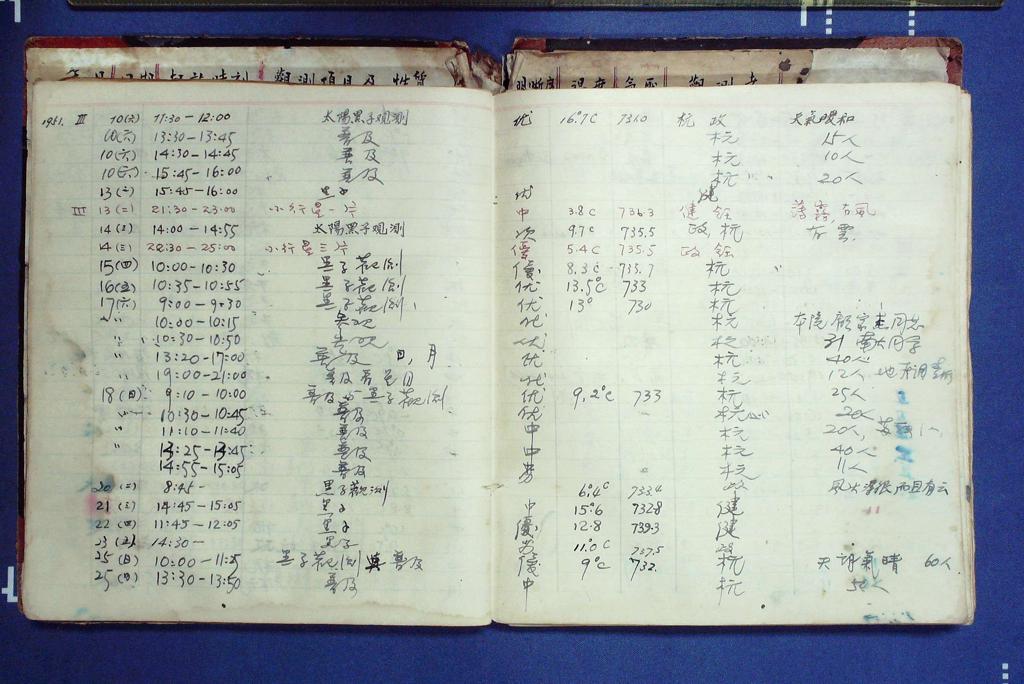 年月日期 起訖時刻 觀測項目及性質 明晰度 温度 氣压 觀測者
1951. III 10(六) 11:30-12:00 太陽黑子观測 优 16.7C 731.0 杭 政 天氣暖和
10(六) 13:30-13:45 普及 杭 15人
10(六) 14:30-14:45 普及 杭 10人
10(六) 15:45-16:00 普及 杭 20人
13(二) 15:45-16:00 黑子 优
III 13(二) 21:30-23:00 小行星一片 中 3.8C 736.3 健 薄霧, 有風
14(三) 14:00-14:55 太陽黑子观測 次 9.7C 735.5 政, 杭 有雲.
14(三) 22:30-25:00 小行星三片 優 5.4C 735.5 政
15(四) 10:00-10:30 黑子观測 優 8.3C 735.7 杭
16(五) 10:35-10:55 黑子观測 优 13.5°C 733 杭
17(六) 9:00-9:30 黑子观測 优 13° 730 杭
" 10:00-10:15 优 杭 本院 同志
" 10:30-10:50 优 杭 31 南大同学
" 13:20-17:00 普及 日, 月 优 杭 40人
" 19:00-21:00 普及 月 优 杭 12人
18(日) 9:10-10:00 普及 黑子观測 优 9.2°C 733 杭 25人
" 10:30-10:45 普及 优 杭 20人
" 11:10-11:40 普及 中 杭 20人,
" 13:25-13:45 普及 中 杭 40人
14:55-15:05 普及 劣 杭 11人
20(二) 8:45- 黑子觀測 6.4°C 733.4 政 風大 而且有云
21(三) 14:45-15:05 黑子 中 15.6 732.8 健 "
22(四) 11:45-12:05 黑子 優 12.8 739.3 健
23(五) 14:30- 黑子 劣 11.0°C 737.5 政
25(日) 10:00-11:25 黑子观測 與 普及 優 9°C 732. 杭 天朗氣晴 60人
25(日) 13:30-13:50 普及 中 杭 50人